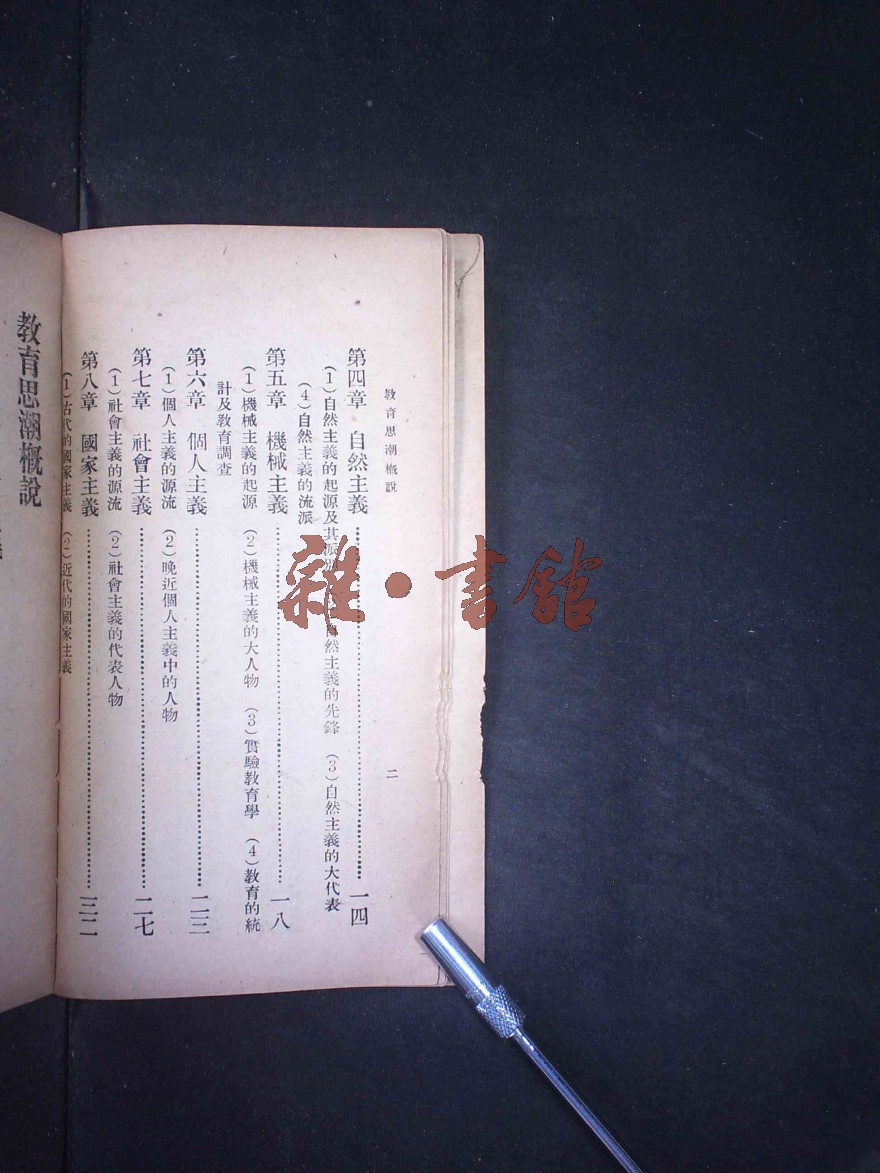 教育思潮概說
二
第四章　自然主義……一四
(1)自然主義的起源及其派別　自然主義的先鋒　(3)自然主義的大代表
(4)自然主義的流派
第五章　機械主義……一八
(1)機械主義的起源　(2)機械主義的大人物　(3)實驗教育學　(4)教育的統
計及教育調查
第六章　個人主義……二三
(1)個人主義的源流　(2)晚近個人主義中的人物
第七章　社會主義……二七
(1)社會主義的源流　(2)社會主義的代表人物
第八章　國家主義……三二
(1)古代的國家主義　(2)近代的國家主義
教育思潮概說
雜·書館